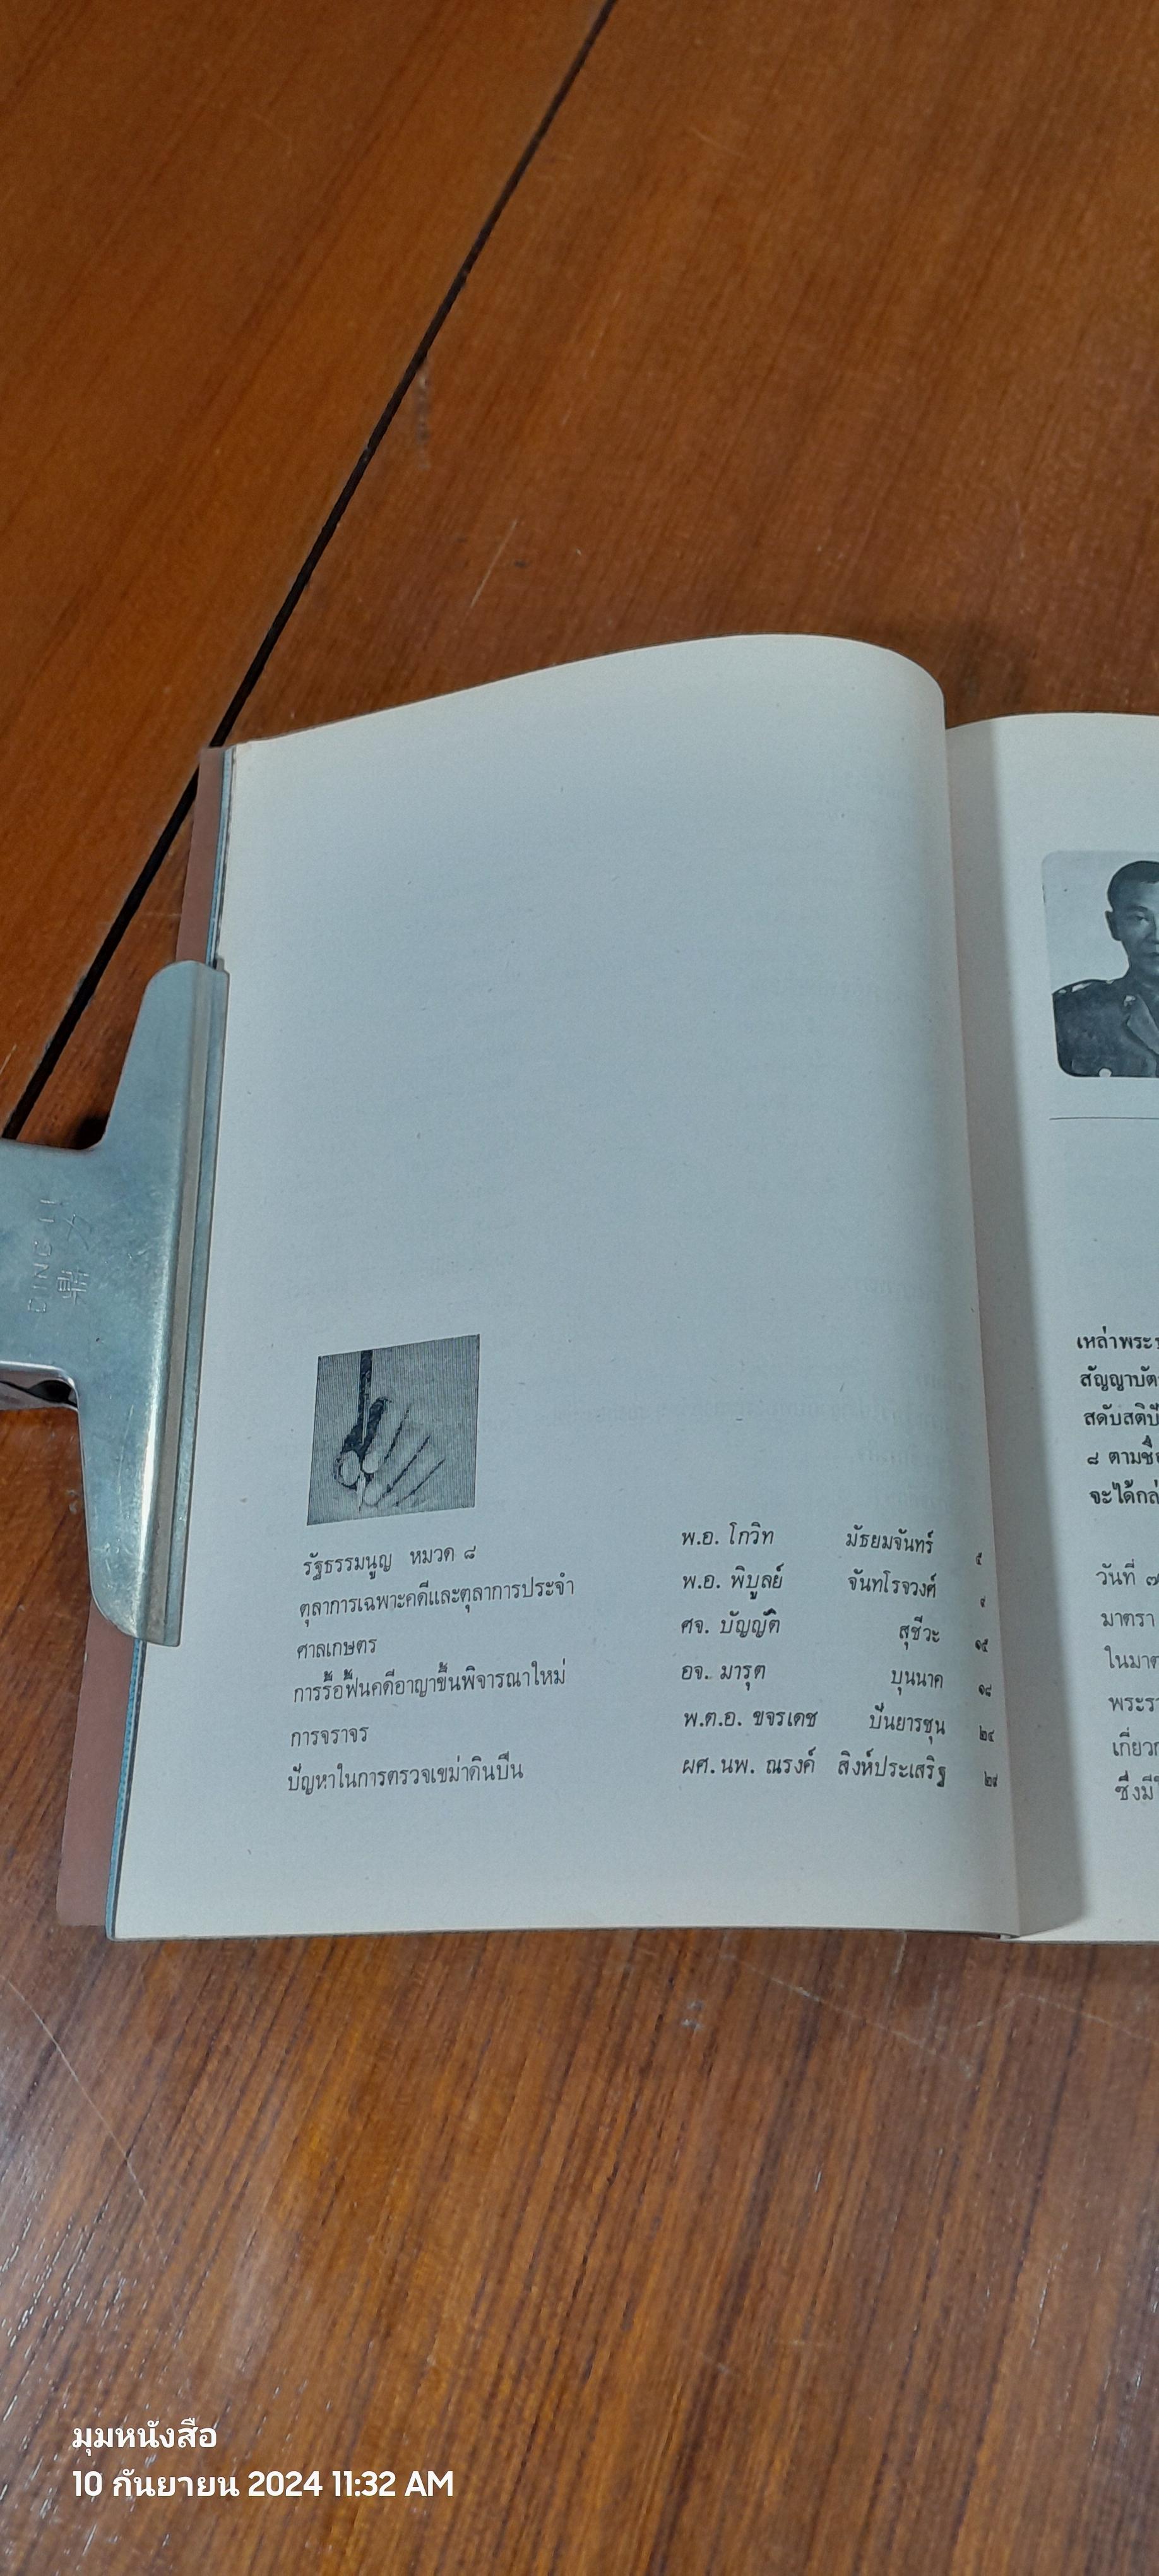 รัฐธรรมนูญ หมวด ๘ พ.อ. โกวิท มัธยมจันทร์ ๕
ตุลาการเฉพาะคดีและตุลาการประจำ พ.อ. พิบูลย์ จันทโรจวงศ์ ๙
ศาลเกษตร ศจ. บัญญัติ สุชีวะ ๑๕
การรื้อฟื้นคดีอาญาขึ้นพิจารณาใหม่ อจ. มารุต บุนนาค ๑๘
การจราจร พ.ต.อ. ขจรเดช ปั้นยารชุน ๒๔
ปัญหาในการตรวจเขม่าดินปืน ผศ. นพ. ณรงค์ สิงห์ประเสริฐ ๒๙
เหล่าพระ
สัญญาบัต
สดับสติปั
๘ ตามชื่อ
จะได้กล่
วันที่ ๗
มาตรา
ในมาต
พระรา
เกี่ยวก
ซึ่งมี
DING LI
มุมหนังสือ
10 กันยายน 2024 11:32 AM